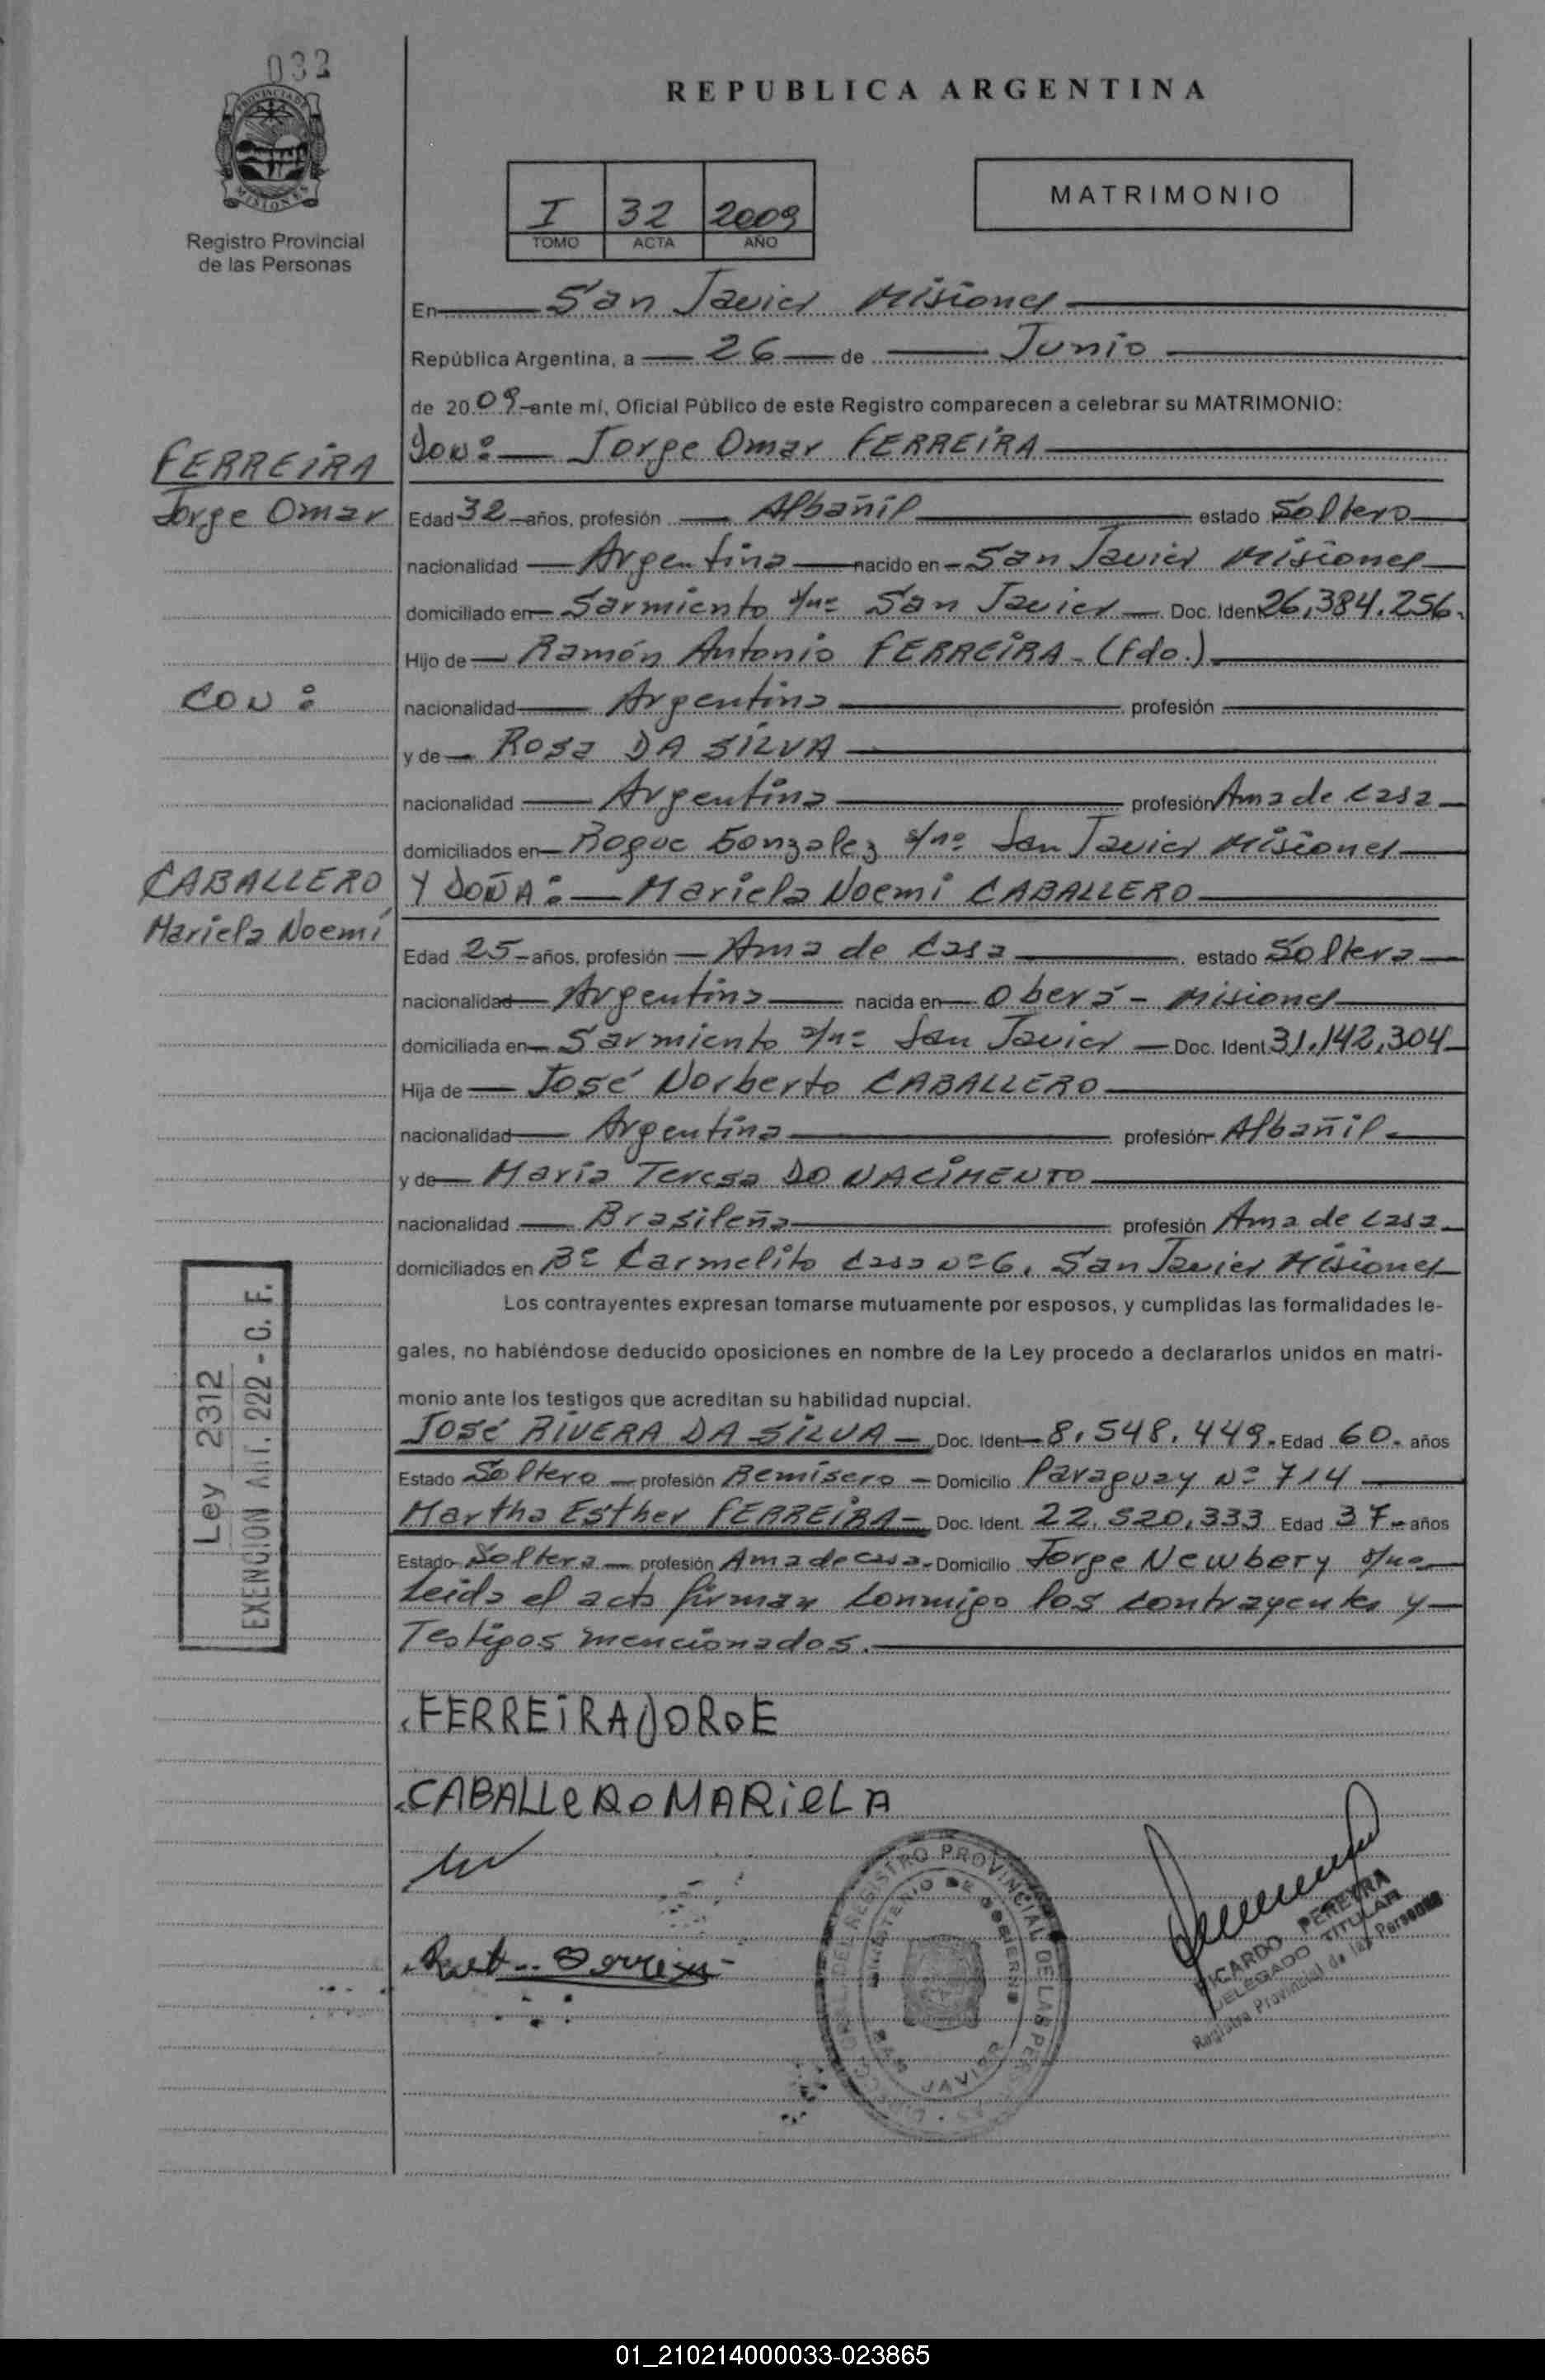 032
PROVINCIA DE
MISIONES
Registro Provincial
de las Personas
REPUBLICA ARGENTINA
I 32 2009
TOMO ACTA AÑO
MATRIMONIO
En San Javier Misiones
República Argentina, a 26 de Junio
de 2009 ante mí, Oficial Público de este Registro comparecen a celebrar su MATRIMONIO:
FERREIRA
Jorge Omar
Don: Jorge Omar FERREIRA
Edad 32 años, profesión Albañil estado Soltero
nacionalidad Argentina nacido en San Javier Misiones
domiciliado en Sarmiento s/nº San Javier Doc. Ident 26,384.256.
Hijo de Ramón Antonio FERREIRA - (fdo.)
CON:
nacionalidad Argentina profesión
y de Rosa DA SILVA
nacionalidad Argentina profesión Ama de casa
domiciliados en Roque Gonzalez s/nº San Javier Misiones
CABALLERO
Mariela Noemí
Y DOÑA: Mariela Noemi CABALLERO
Edad 25 años, profesión Ama de casa estado Soltera
nacionalidad Argentina nacida en Oberá - Misiones
domiciliada en Sarmiento s/nº San Javier Doc. Ident 31.142.304
Hija de José Norberto CABALLERO
nacionalidad Argentina profesión Albañil
y de María Teresa DO NACIMENTO
nacionalidad Brasileña profesión Ama de casa
domiciliados en Bº Carmelito casa nº 6, San Javier Misiones
Los contrayentes expresan tomarse mutuamente por esposos, y cumplidas las formalidades le-
gales, no habiéndose deducido oposiciones en nombre de la Ley procedo a declararlos unidos en matri-
monio ante los testigos que acreditan su habilidad nupcial.
Ley 2312
EXENCION Art. 222 - C. F.
José RIVERA DA SILVA Doc. Ident 8.548.449. Edad 60. años
Estado Soltero profesión Remisero Domicilio Paraguay Nº 714
Martha Esther FERREIRA Doc. Ident. 22.520.333 Edad 37 años
Estado Soltera profesión Ama de casa Domicilio Jorge Newbery s/nº
Leida el acta firman conmigo los contrayentes y
Testigos mencionados.
FERREIRA JORGE
CABALLERO MARIELA
REGISTRO PROVINCIAL DE LAS PERSONAS
MINISTERIO DE GOBIERNO
SAN JAVIER
RICARDO PEREYRA
DELEGADO TITULAR
Registro Provincial de las Personas
01_210214000033-023865